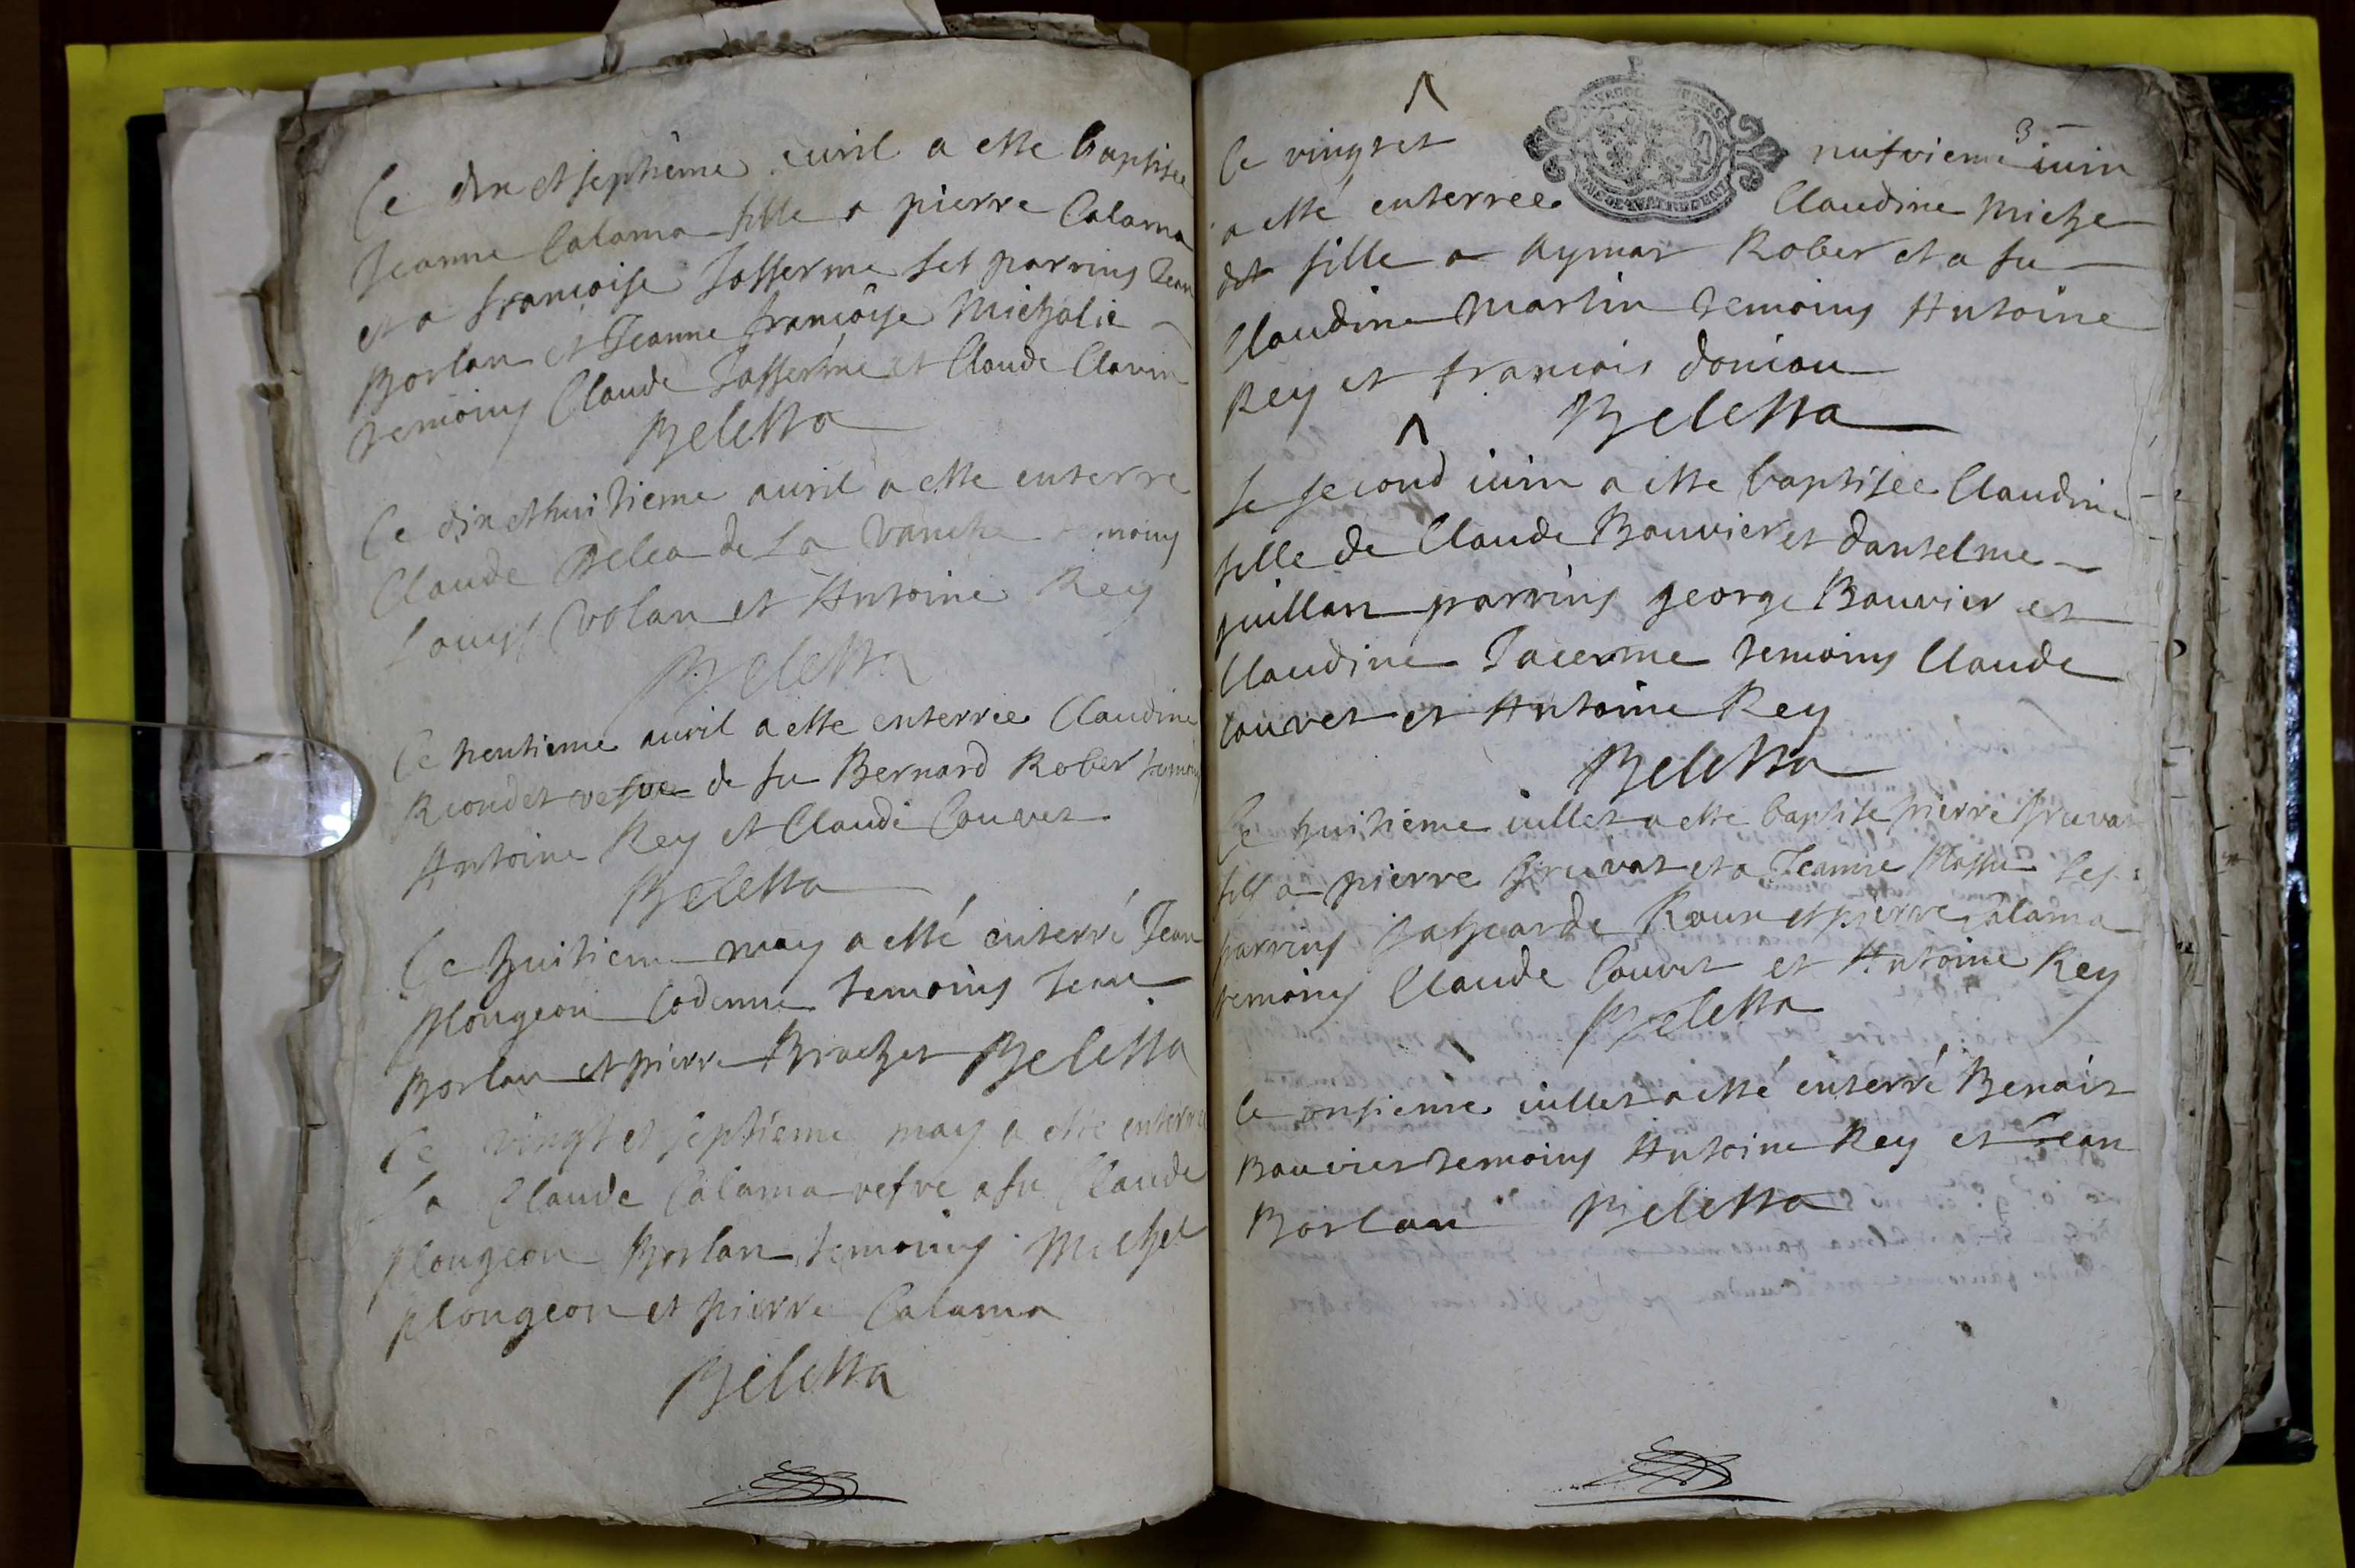 Ce dix et septieme auril a esté baptisée
Jeanne Calama fille a pierre Calama
et a françoise Josserme ses parrins Jean
Borlan et Jeanne françoise Michalie
temoins Claude Josserme et Claude Clavin
Beletta
Ce dix et huitieme auril a esté enterre
Claude Belea de La Vanche temoins
Louys Volan et Antoine Rey
Beletta
Ce trentieme auril a esté enterrée Claudine
Riondet vefve de fu Bernard Rober temoins
Antoine Rey et Claude Couvet
Beletta
Ce huitieme may a esté enterré Jean
Plongeon Codenne temoins Jean
Borlan et pierre Brachet Beletta
Ce vingt et septieme may a esté enterrée
La Claude Calama vefve a fu Claude
plongeon Borlan temoins Michel
plongeon et pierre Calama
Beletta
3
Ce vingt et nufvieme iuin
a esté enterrée Claudine Miche
fille a Aymar Rober et a fu
Claudine Martin temoins Antoine
Rey et françois doniou
Beletta
Le second iuin a esté baptisée Claudine
fille de Claude Bouvier et danselme
guillan parrins george Bouvier et
Claudine Jacerme temoins Claude
Couvet et Antoine Rey
Beletta
Ce huitieme iullet a esté baptisé pierre gruvat
fils a pierre gruvat et a Jeanne Massu ses
parrins Gasparde Roux et pierre Calama
temoins Claude Couvet et Antoine Rey
Beletta
Ce onsieme iullet a esté enterré Benoit
Bouvier temoins Antoine Rey et Jean
Borlan Beletta